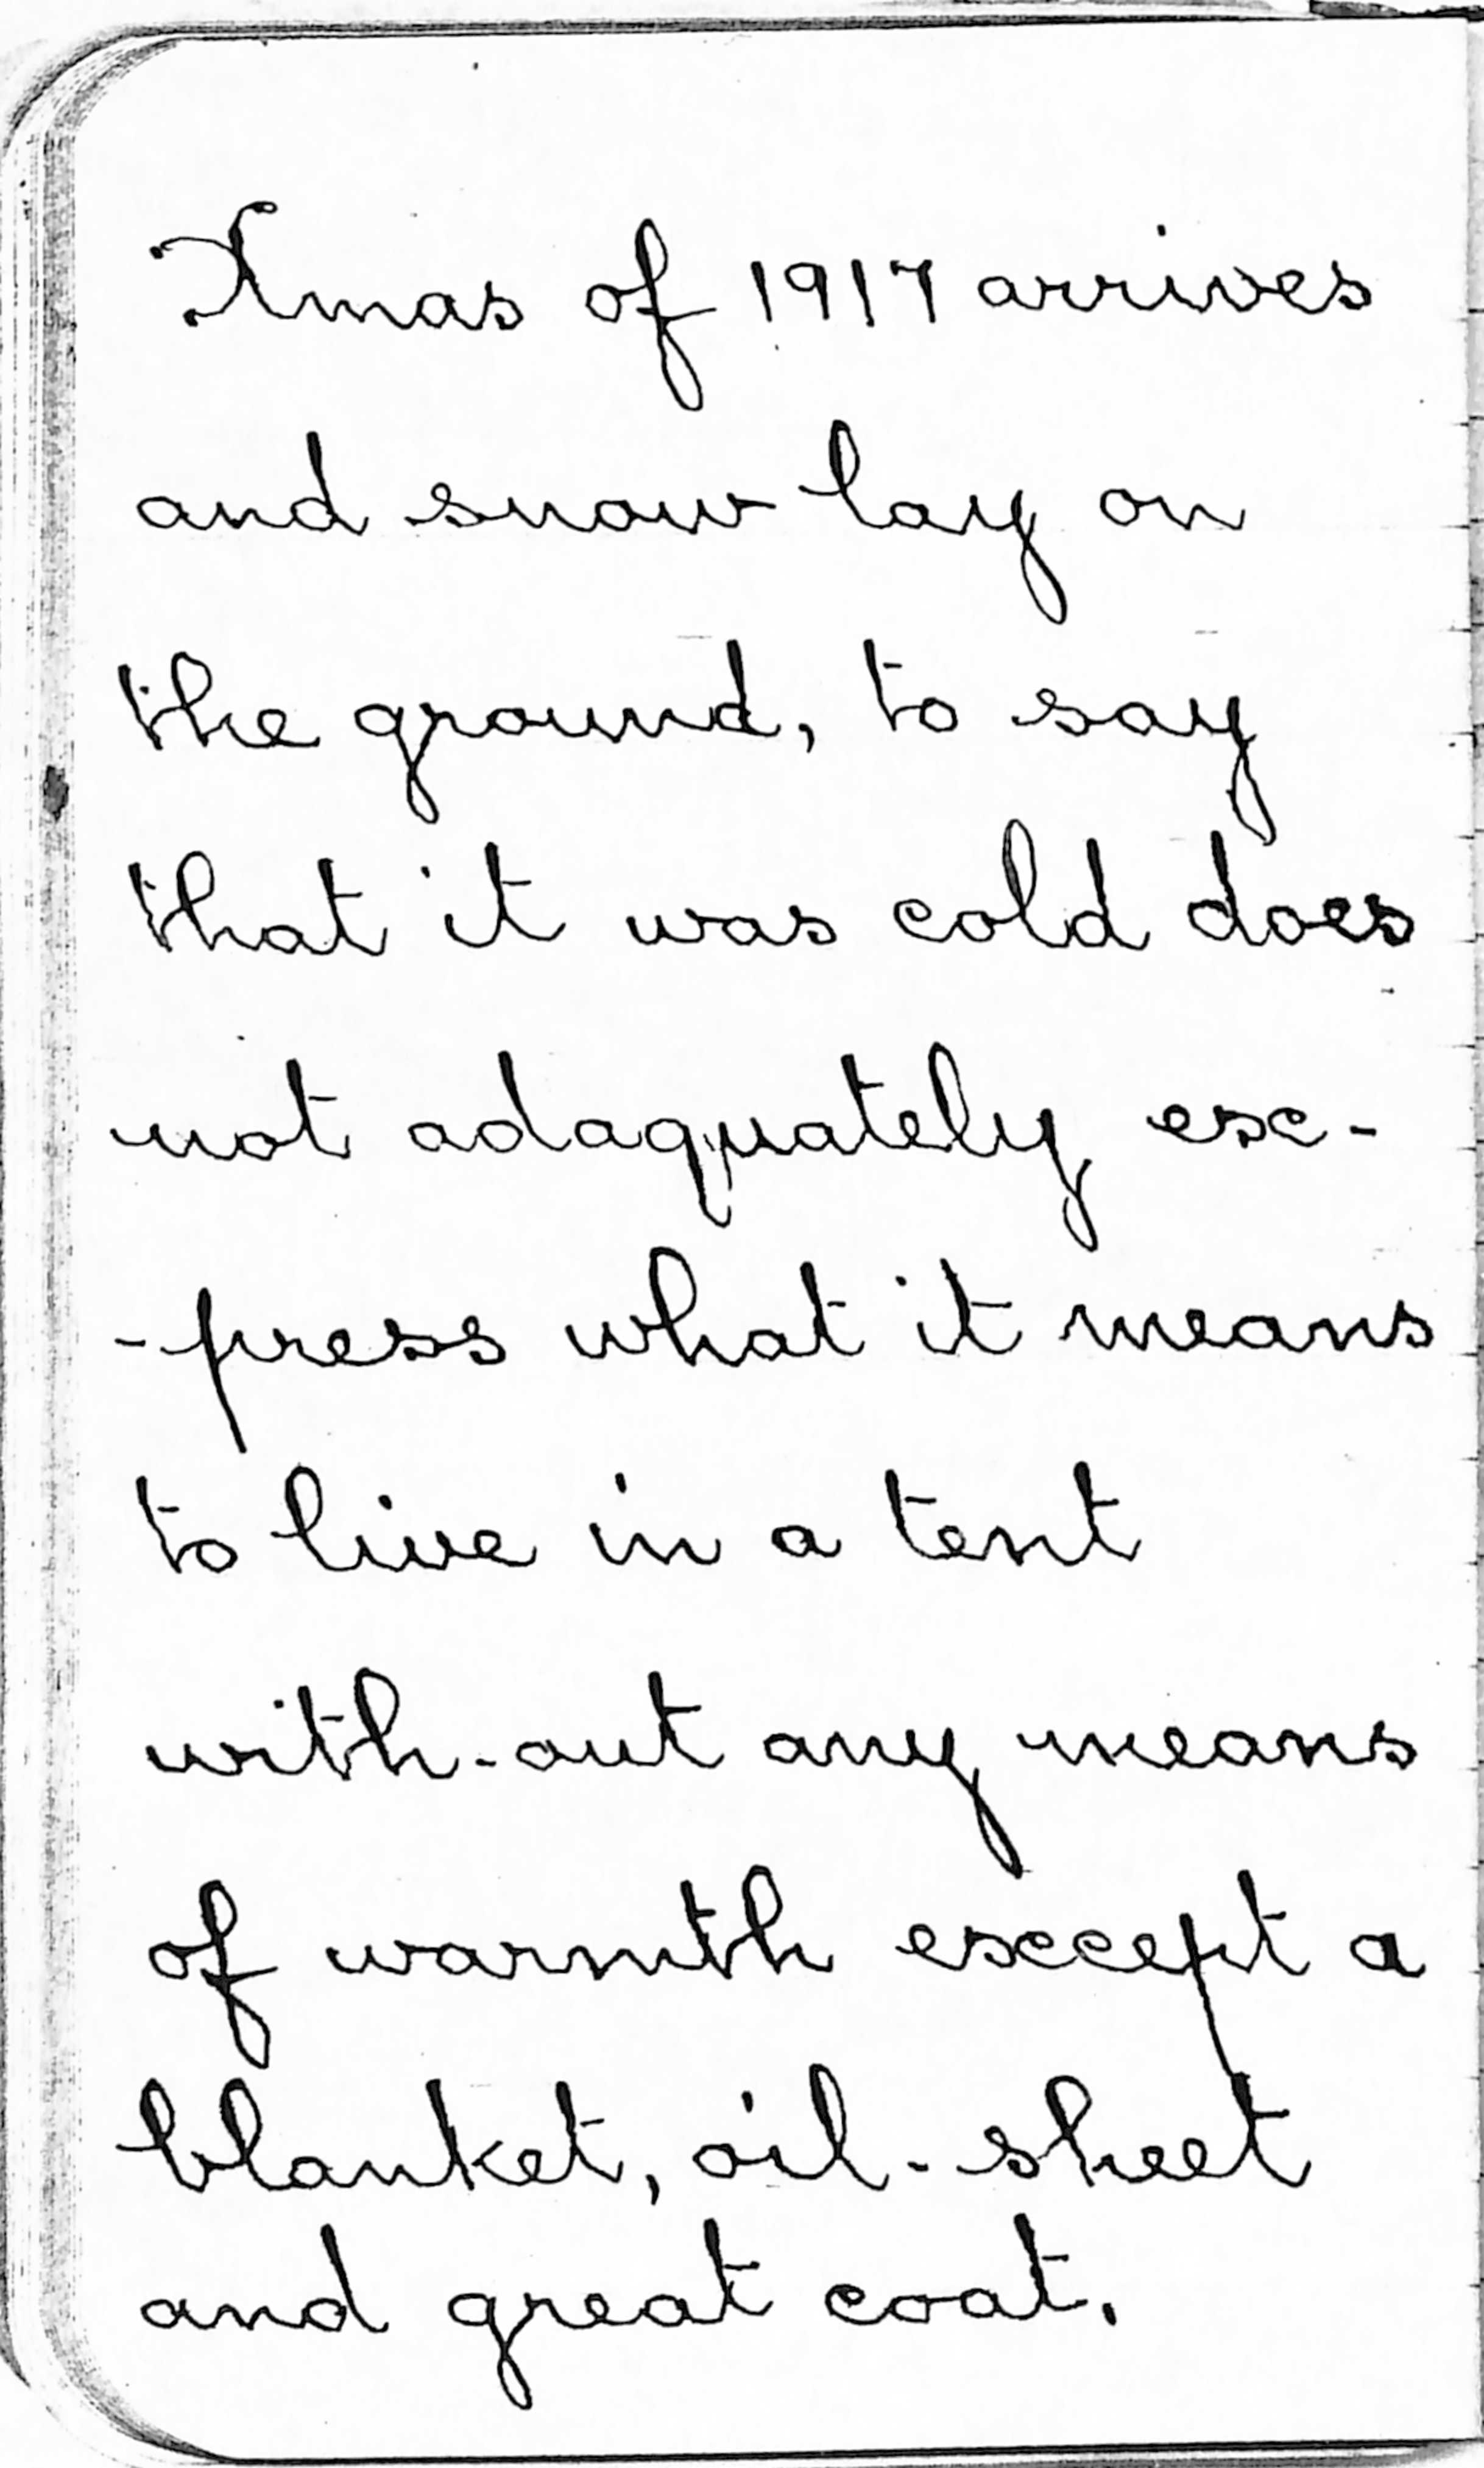 Xmas of 1917 arrives
and snow lay on
the ground, to say
that it was cold does
not adaquately ex-
-press what it means
to live in a tent
with-out any means
of warmth except a
blanket, oil-sheet
and great coat.